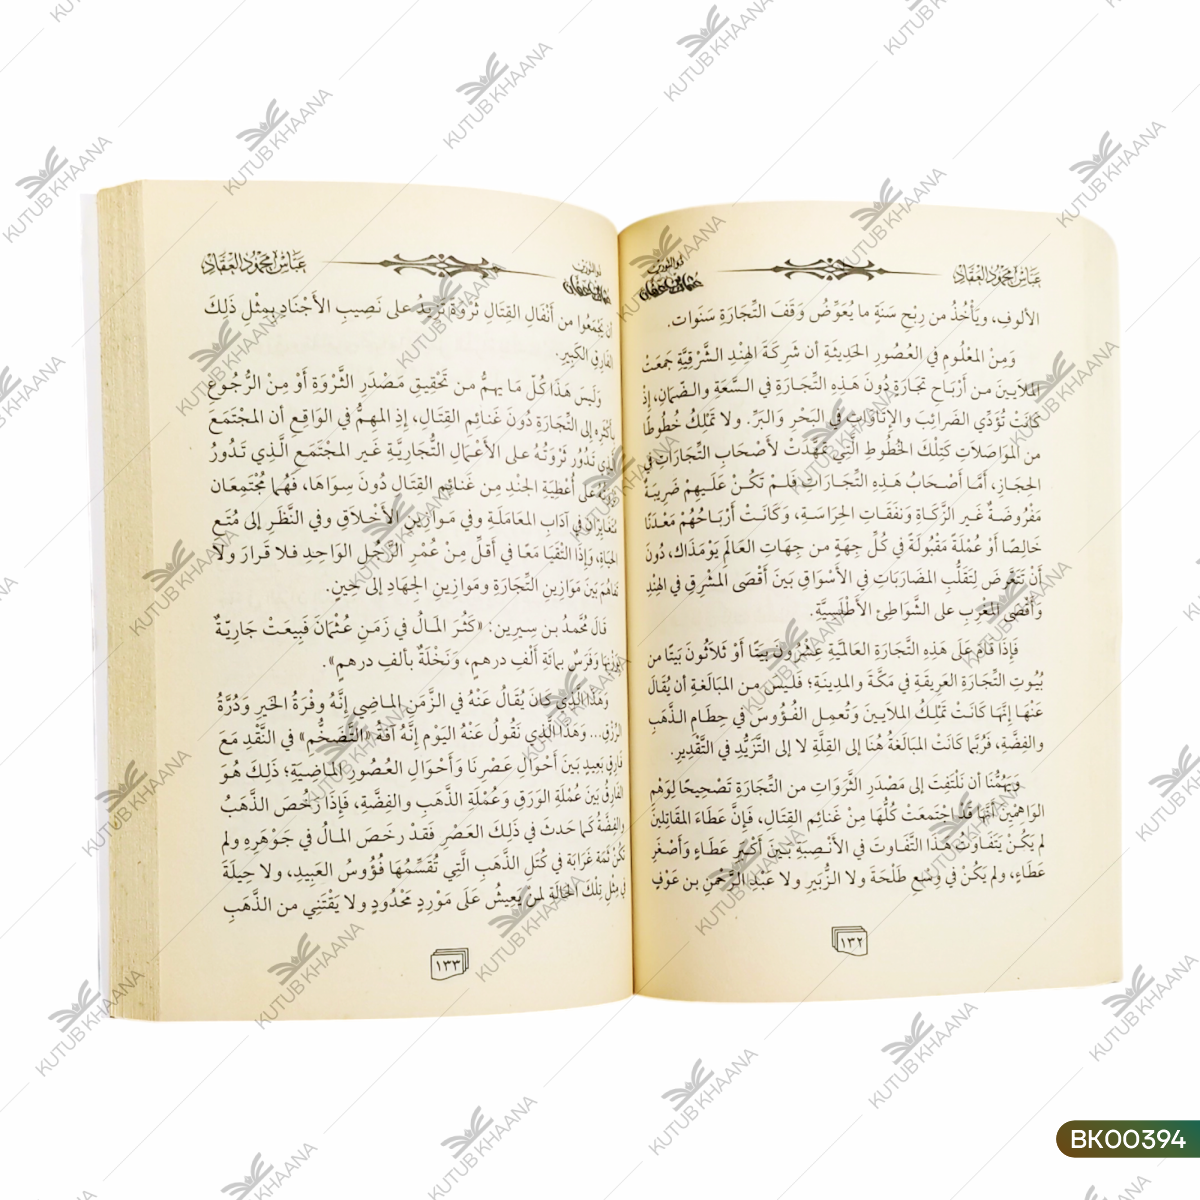 عَبَّاسْ مَحْمُودْ العَقَّادْ
ذو النورين
عثمان بن عفان
الألوفِ، ويَأْخُذُ من رِبْحِ سَنَةٍ ما يُعَوِّضُ وَقْفَ التِّجَارَةِ سَنَوات.
وَمِنْ المَعْلُومِ في العُصُورِ الحَدِيثَةِ أن شَرِكَةَ الهِنْدِ الشَّرْقِيَّةِ جَمَعَتْ
المَلايينَ من أرْبَاحِ تجَارَةٍ دُونَ هَـذِهِ التِّجَارَةِ في السَّعَةِ والـضَّمانِ، إذ
كَانَتْ تُؤَدِّي الضَرائِبَ والإتَاوَاتِ في البَحْرِ والبَرِّ. ولا تَمْلِكُ خُطُوطًا
من المُوَاصَلَاتِ كَتِلْكَ الخُطُوطِ الَّتِي تَمَهَّدَتْ لأَصْحَابِ التِّجَارَاتِ في
الحِجَازِ، أمَّا أصْحَابُ هَـذِهِ التِّجَارَاتِ فَلَمْ تَكُـنْ عَلَـيهِمْ ضَرِيبَةٌ
مَفْرُوضَةٌ غَير الزَّكَاةِ وَنَفَقَاتِ الحِرَاسَةِ، وَكَانَتْ أرْبَاحُهُمْ مَعْدَنًا
خَالِصًا أوْ عُمْلَةً مَقْبُولَةً في كُلِّ جِهَةٍ من جِهَاتِ العَالَمِ يَوْمَذَاك، دُونَ
أنْ تَتَعَرَّضَ لِتَقَلُّبِ المُضَارَبَاتِ في الأَسْوَاقِ بَينَ أقْصَى المَشْرِقِ في الهِنْدِ
وَأَقْصَى المَغْرِبِ على الشَّوَاطِئِ الأَطْلَسِيَّةِ.
فَإِذَا قَامَ عَلَى هَذِهِ التِّجَارَةِ العالميَّةِ عِشْرُونَ بَيْتًا أوْ ثَلَاثُونَ بَيْتًا من
بُيُوتِ التِّجَارَةِ العَرِيقَةِ في مَكَّةَ والمَدِينَةِ؛ فَلَـيْسَ من المُبَالَغَةِ أن يُقَالَ
عَنْهَا إنَّهَا كَانَتْ تَمْلِكُ المَلايينَ وَتُعمِـل الفُـؤُوسَ في حِطَامِ الـذَّهَبِ
والفِضَّةِ، فَرُبَّما كَانَتْ المُبَالَغَةُ هُنَا إلى القِلَّةِ لا إلى التَّزَيُّدِ في التَّقْدِيرِ.
وَيَهُمُّنَا أن نَلْتَفِتَ إلى مَصْدَرِ الثَّرَوَاتِ من التِّجَارَةِ تَصْحِيحًا لِوَهْمِ
الوَاهِمينَ أنَّهَا قَدْ اجْتَمَعَتْ كُلُّهَا مِنْ غَنَائِمِ القِتَالِ، فَإِنَّ عَطَاءَ المُقَاتِلينَ
لم يَكُنْ يَتَفَاوَتُ هَـذَا التَّفَاوتَ في الأَنْـصِبَةِ بَـيْنَ أكْبَرِ عَطَـاءٍ وَأَصْغَرِ
عَطَاءٍ، ولم يَكُنْ في وُسْعِ طَلْحَةَ ولا الزُّبَيرِ ولا عَبْدِ الرَّحْمَنِ بن عَوْفٍ
١٣٢
ذو النورين
عثمان بن عفان
عَبَّاسْ مَحْمُودْ العَقَّادْ
أن يَجْمَعُوا من أنْفَالِ القِتَالِ ثَرْوَةً تَزِيدُ على نَصِيبِ الأَجْنَادِ بِمِثْلِ ذَلِكَ
الفَارِقِ الكَبِيرِ.
وَلَيسَ هَذَا كُلّ مَا يهمُّ من تَحْقِيقِ مَصْدَرِ الثَّرْوَةِ أوْ مِنْ الرُّجُوعِ
بِأَكْثَرِهِ إلى التِّجَارَةِ دُونَ غَنَائِمِ القِتَالِ، إذ المهمُّ في الوَاقِعِ أن المجْتَمَعَ
الَّذِي تَدُورُ ثَرْوَتُـهُ على الأعْمَالِ التُّجَارِيَّةِ غَـير المجْتَمَـعِ الَّـذِي تَـدُورُ
ثَرْوَتُهُ على أُعْطِيَةِ الجُنْدِ مِن غَنَائِمِ القِتَالِ دُونَ سِوَاهَا، فَهُما مُجْتَمِعَانِ
مُتَغَايِرَانِ في آدَابِ المُعَامَلَةِ وفي مَـوازِينِ الأَخْـلَاقِ وفي النَّظَـرِ إلى مُتَـعِ
الحَيَاةِ، وَإِذَا التَقَيَا مَعًا في أقَلِّ مِنْ عُمْرِ الرَّجُلِ الوَاحِدِ فلا قَرارَ ولا
تَفَاهُمَ بَينَ مَوَازِينِ التِّجَارَةِ ومَوازِينِ الجِهَادِ إلى حِينٍ.
قَالَ مُحَمَّدُ بـن سِيرِين: «كَثُـرَ المَـالُ في زَمَـنِ عُـثْمَانَ فَبِيعَتْ جَارِيَـةٌ
بِوَزْنِهَا وَفَرَسٌ بمائَةِ ألْفِ درهَمٍ، وَنَخْلَةٌ بألفِ درهمٍ».
وَهَذَا الَّذِي كَانَ يُقَالُ عَنْهُ في الزَّمَنِ المـاضِي إنَّهُ وفْرَةُ الخَيرِ وَدُرَّةُ
الرِّزْقِ... وَهَذَا الَّذِي نَقُولُ عَنْهُ اليَوْم إنَّهُ آفَةُ «التَّضَخُّم» في النَّقْدِ مَعَ
فَارِقٍ بَعِيدٍ بَينَ أحْوَالِ عَصْرِنَا وَأحْوَالِ العُصُورِ المَاضِيَةِ؛ ذَلِكَ هُوَ
الفَارِقُ بَينَ عُمْلَةِ الوَرَقِ وَعُمْلَةِ الذَّهَبِ والفِضَّة، فَإِذَا رَخُصَ الذَّهَبُ
والفِضَّةُ كَما حَدثَ في ذَلِكَ العَصْرِ فَقَدْ رخَصَ المـالُ في جَوْهَرِهِ ولم
تَكُنْ ثَمَّةَ غَرَابَة في كُتَلِ الذَّهَبِ الَّتِي تُقَسِّمُهَا فُؤُوسُ العَبِيدِ، ولا حِيلَةَ
في مِثْلِ تِلْكَ الحَالَةِ لِمَنْ يَعِيشُ عَلَى مَوْرِدٍ مَحْدُودٍ ولا يَقْتَنِي من الذَّهَبِ
١٣٣
KUTUB KHAANA
BK00394